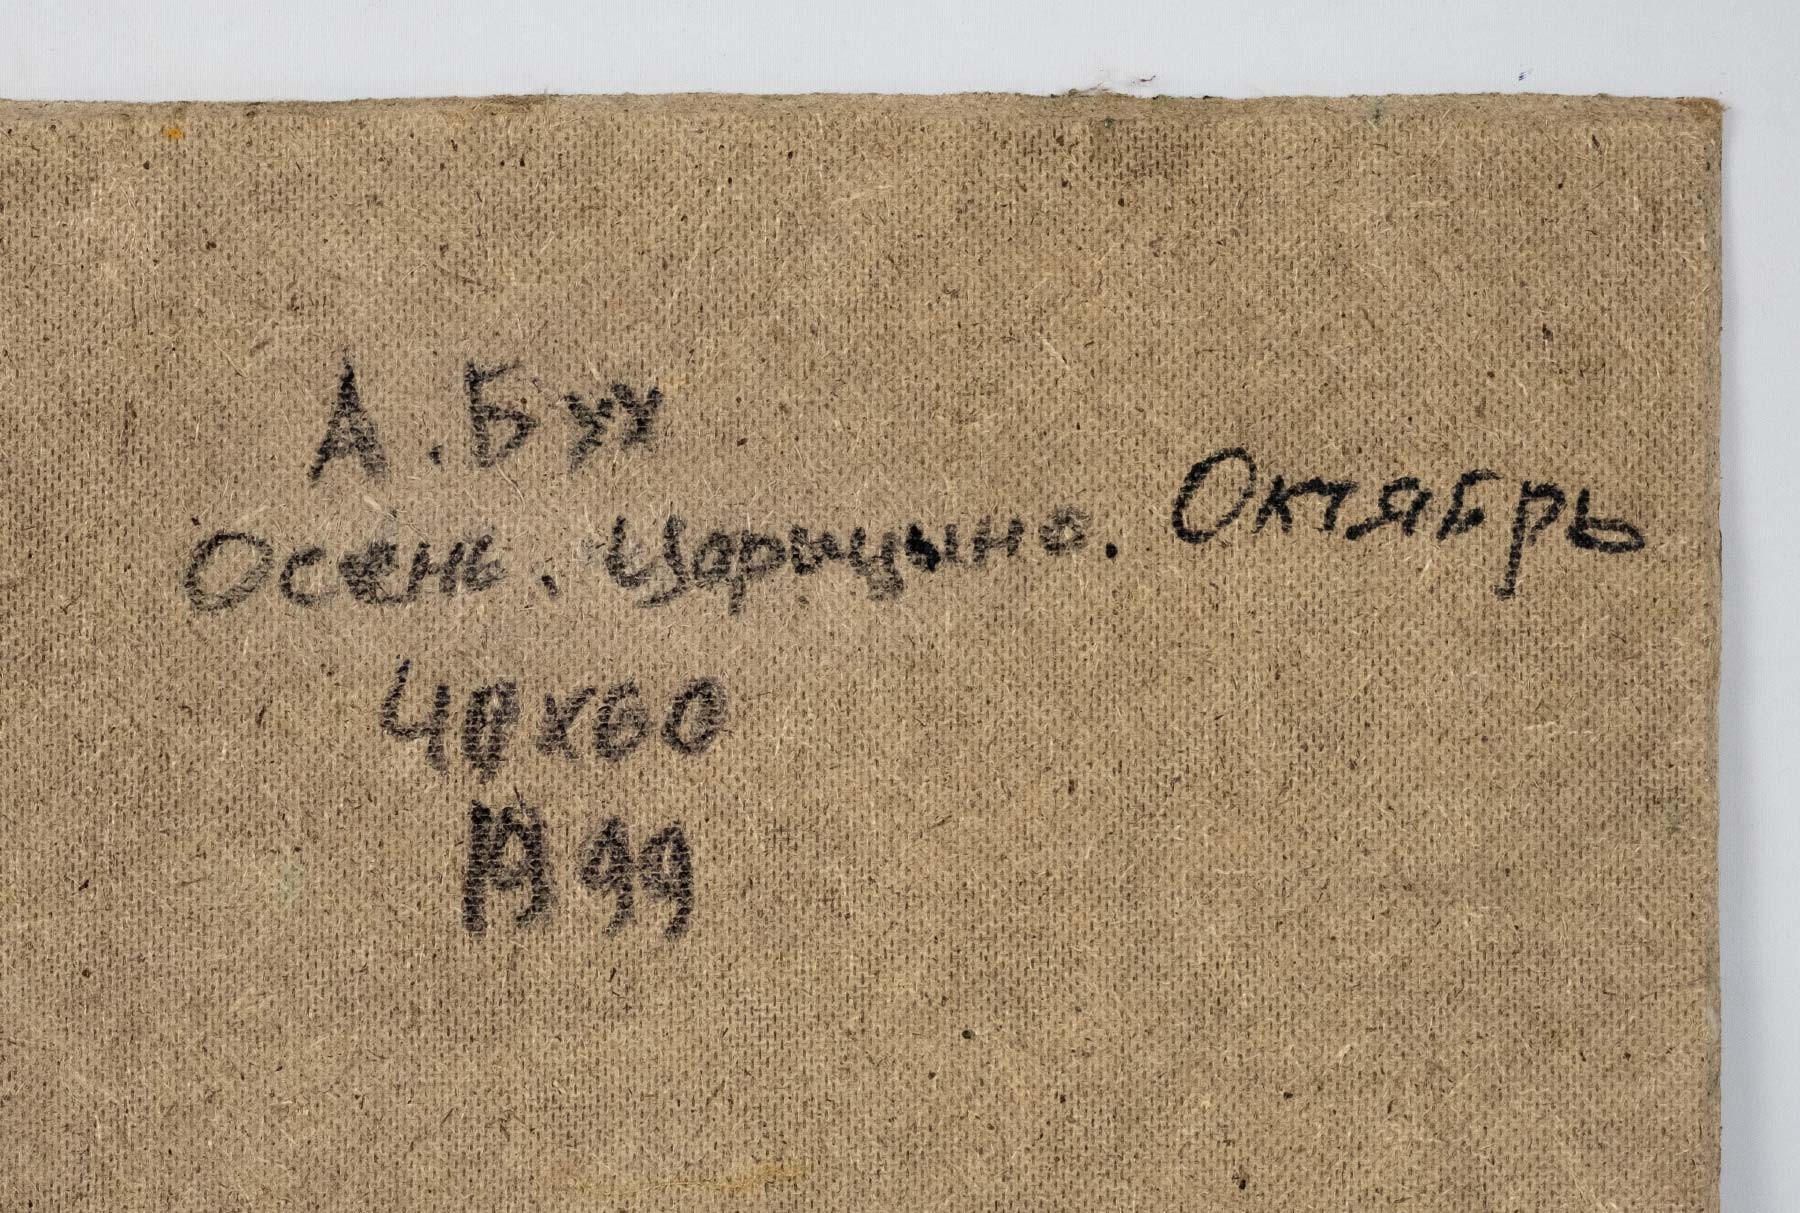 А. Бух
Осень. Царицыно. Октябрь
40х60
1999